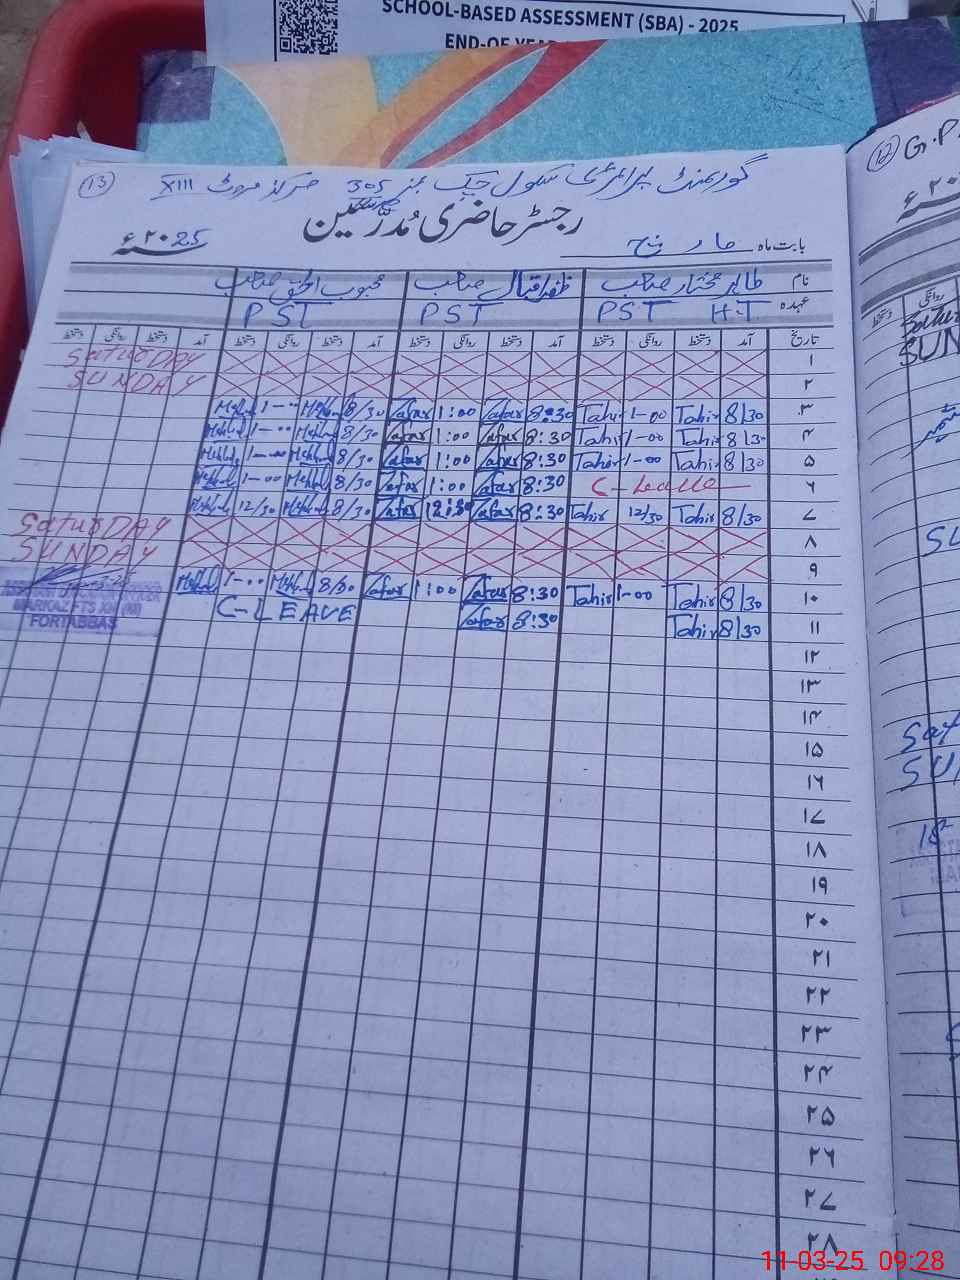 SCHOOL-BASED ASSESSMENT (SBA) - 2025
END-OF YEA
13 گورنمنٹ پرائمری سکول چک نمبر 305 مرکز مروٹ XIII
رجسٹر حاضری مُدرّسین
بابت ماہ مارچ ۲۰25ء
نام طاہر مختار صاحب ظفر اقبال صاحب محبوب الحق صاحب
عہدہ PST H.T PST PST
تاریخ آمد دستخط روانگی دستخط آمد دستخط روانگی دستخط آمد دستخط روانگی دستخط آمد دستخط روانگی دستخط
۱ SaturDAY
۲ SUNDAY
۳ 8/30 Tahir 1-00 Tahir 8:30 Zafar 1:00 Zafar 8/30 Mehbub 1-00 Mehbub
۴ 8/30 Tahir 1-00 Tahir 8:30 Zafar 1:00 Zafar 8/30 Mehbub 1-00 Mehbub
۵ 8/30 Tahir 1-00 Tahir 8:30 Zafar 1:00 Zafar 8/30 Mehbub 1-00 Mehbub
۶ C-Leave 8:30 Zafar 1:00 Zafar 8/30 Mehbub 1-00 Mehbub
۷ 8/30 Tahir 12/30 Tahir 8:30 Zafar 12:30 Zafar 8/30 Mehbub 12/30 Mehbub
۸ SaturDAY
۹ SUNDAY
۱۰ 8/30 Tahir 1-00 Tahir 8:30 Zafar 1:00 Zafar 8/30 Mehbub 1-00 Mehbub
۱۱ 8/30 Tahir 8:30 Zafar C-LEAVE
MARKAZ FTS XIII (M)
FORTABBAS
۱۲
۱۳
۱۴
۱۵
۱۶
۱۷
۱۸
۱۹
۲۰
۲۱
۲۲
۲۳
۲۴
۲۵
۲۶
۲۷
۲۸
12 G.P
۲۰
روانگی
دستخط
Satu
SUN
SU
Sat
SU
11-03-25 09:28